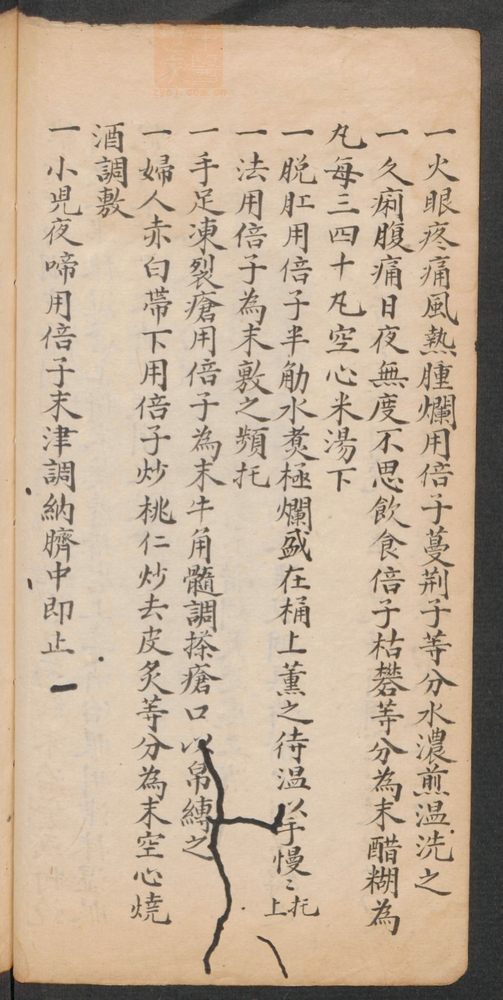 一火眼疼痛風熱腫爛用倍子蔓荆子等分水濃煎温洗之
一久痢腹痛日夜無度不思飲食倍子枯礬等分為末醋糊為
丸每三四十丸空心米湯下
一脫肛用倍子半觔水煑極爛盛在桶上薰之待温以手慢〻托上
一法用倍子為末敷之頻托
一手足凍裂瘡用倍子為末牛角髓調搽瘡口以帛縛之
一婦人赤白帶下用倍子炒桃仁炒去皮炙等分為末空心燒
酒調敷
一小児夜啼用倍子末津調納臍中即止